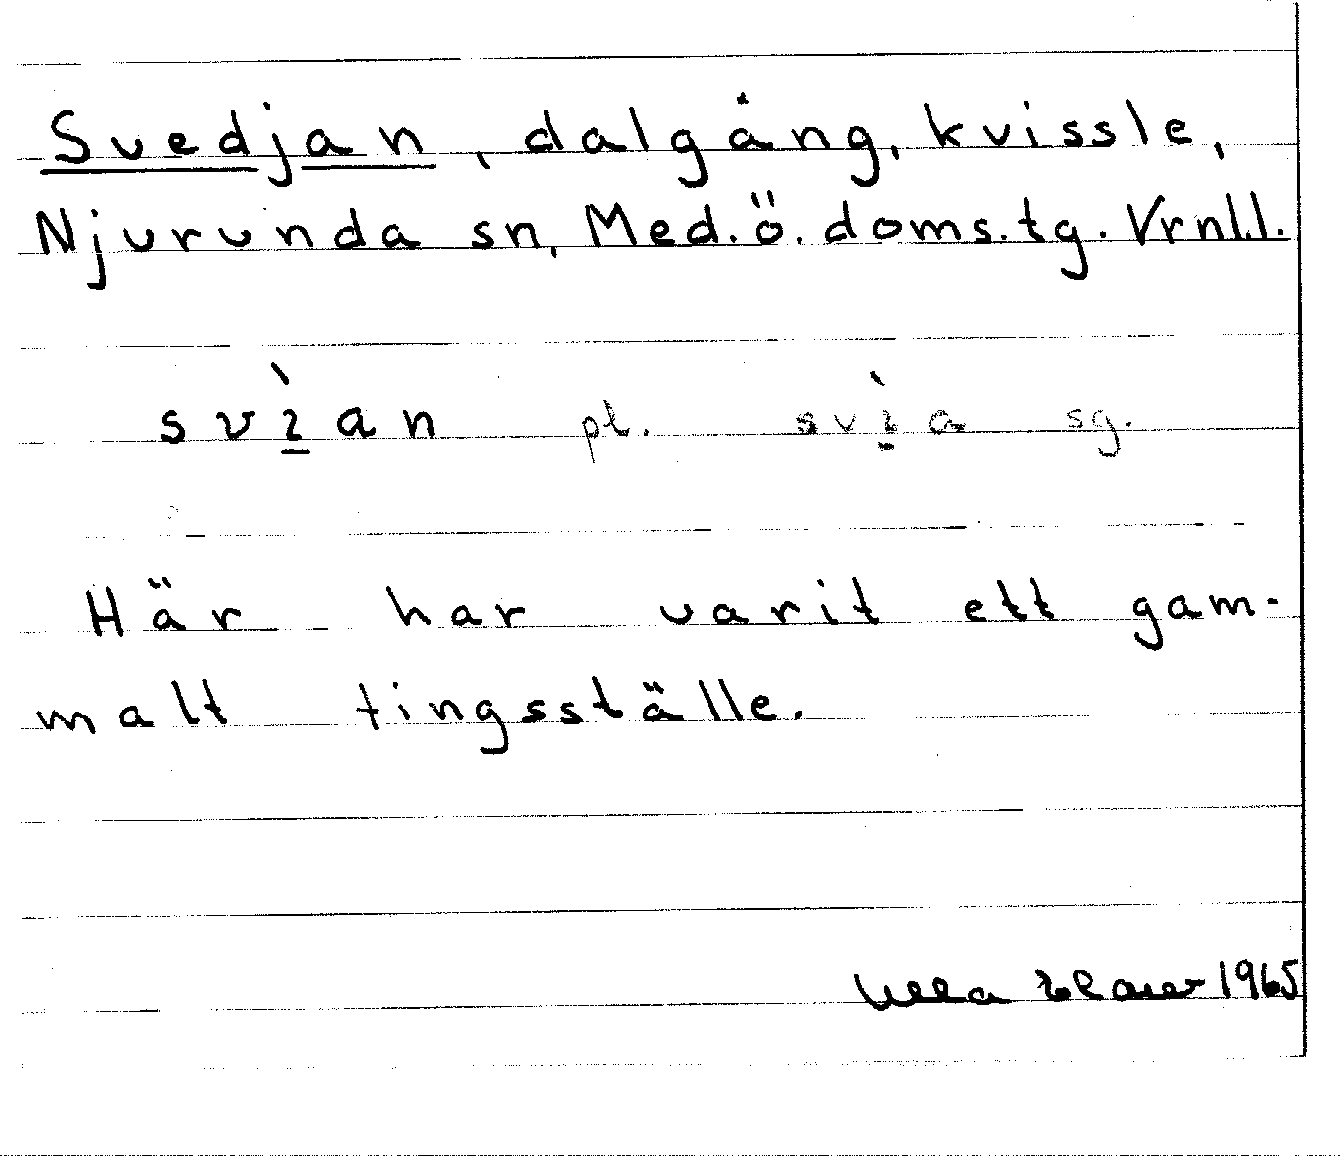 Svedjan, dalgång, kvissle,
Njurunda sn, Med. ö. doms. tg. Vrnl.l.
svɩ̠̀an pl. svɩ̠̀a sg.
Här har varit ett gam-
malt tingsställe.
Ulla 1965